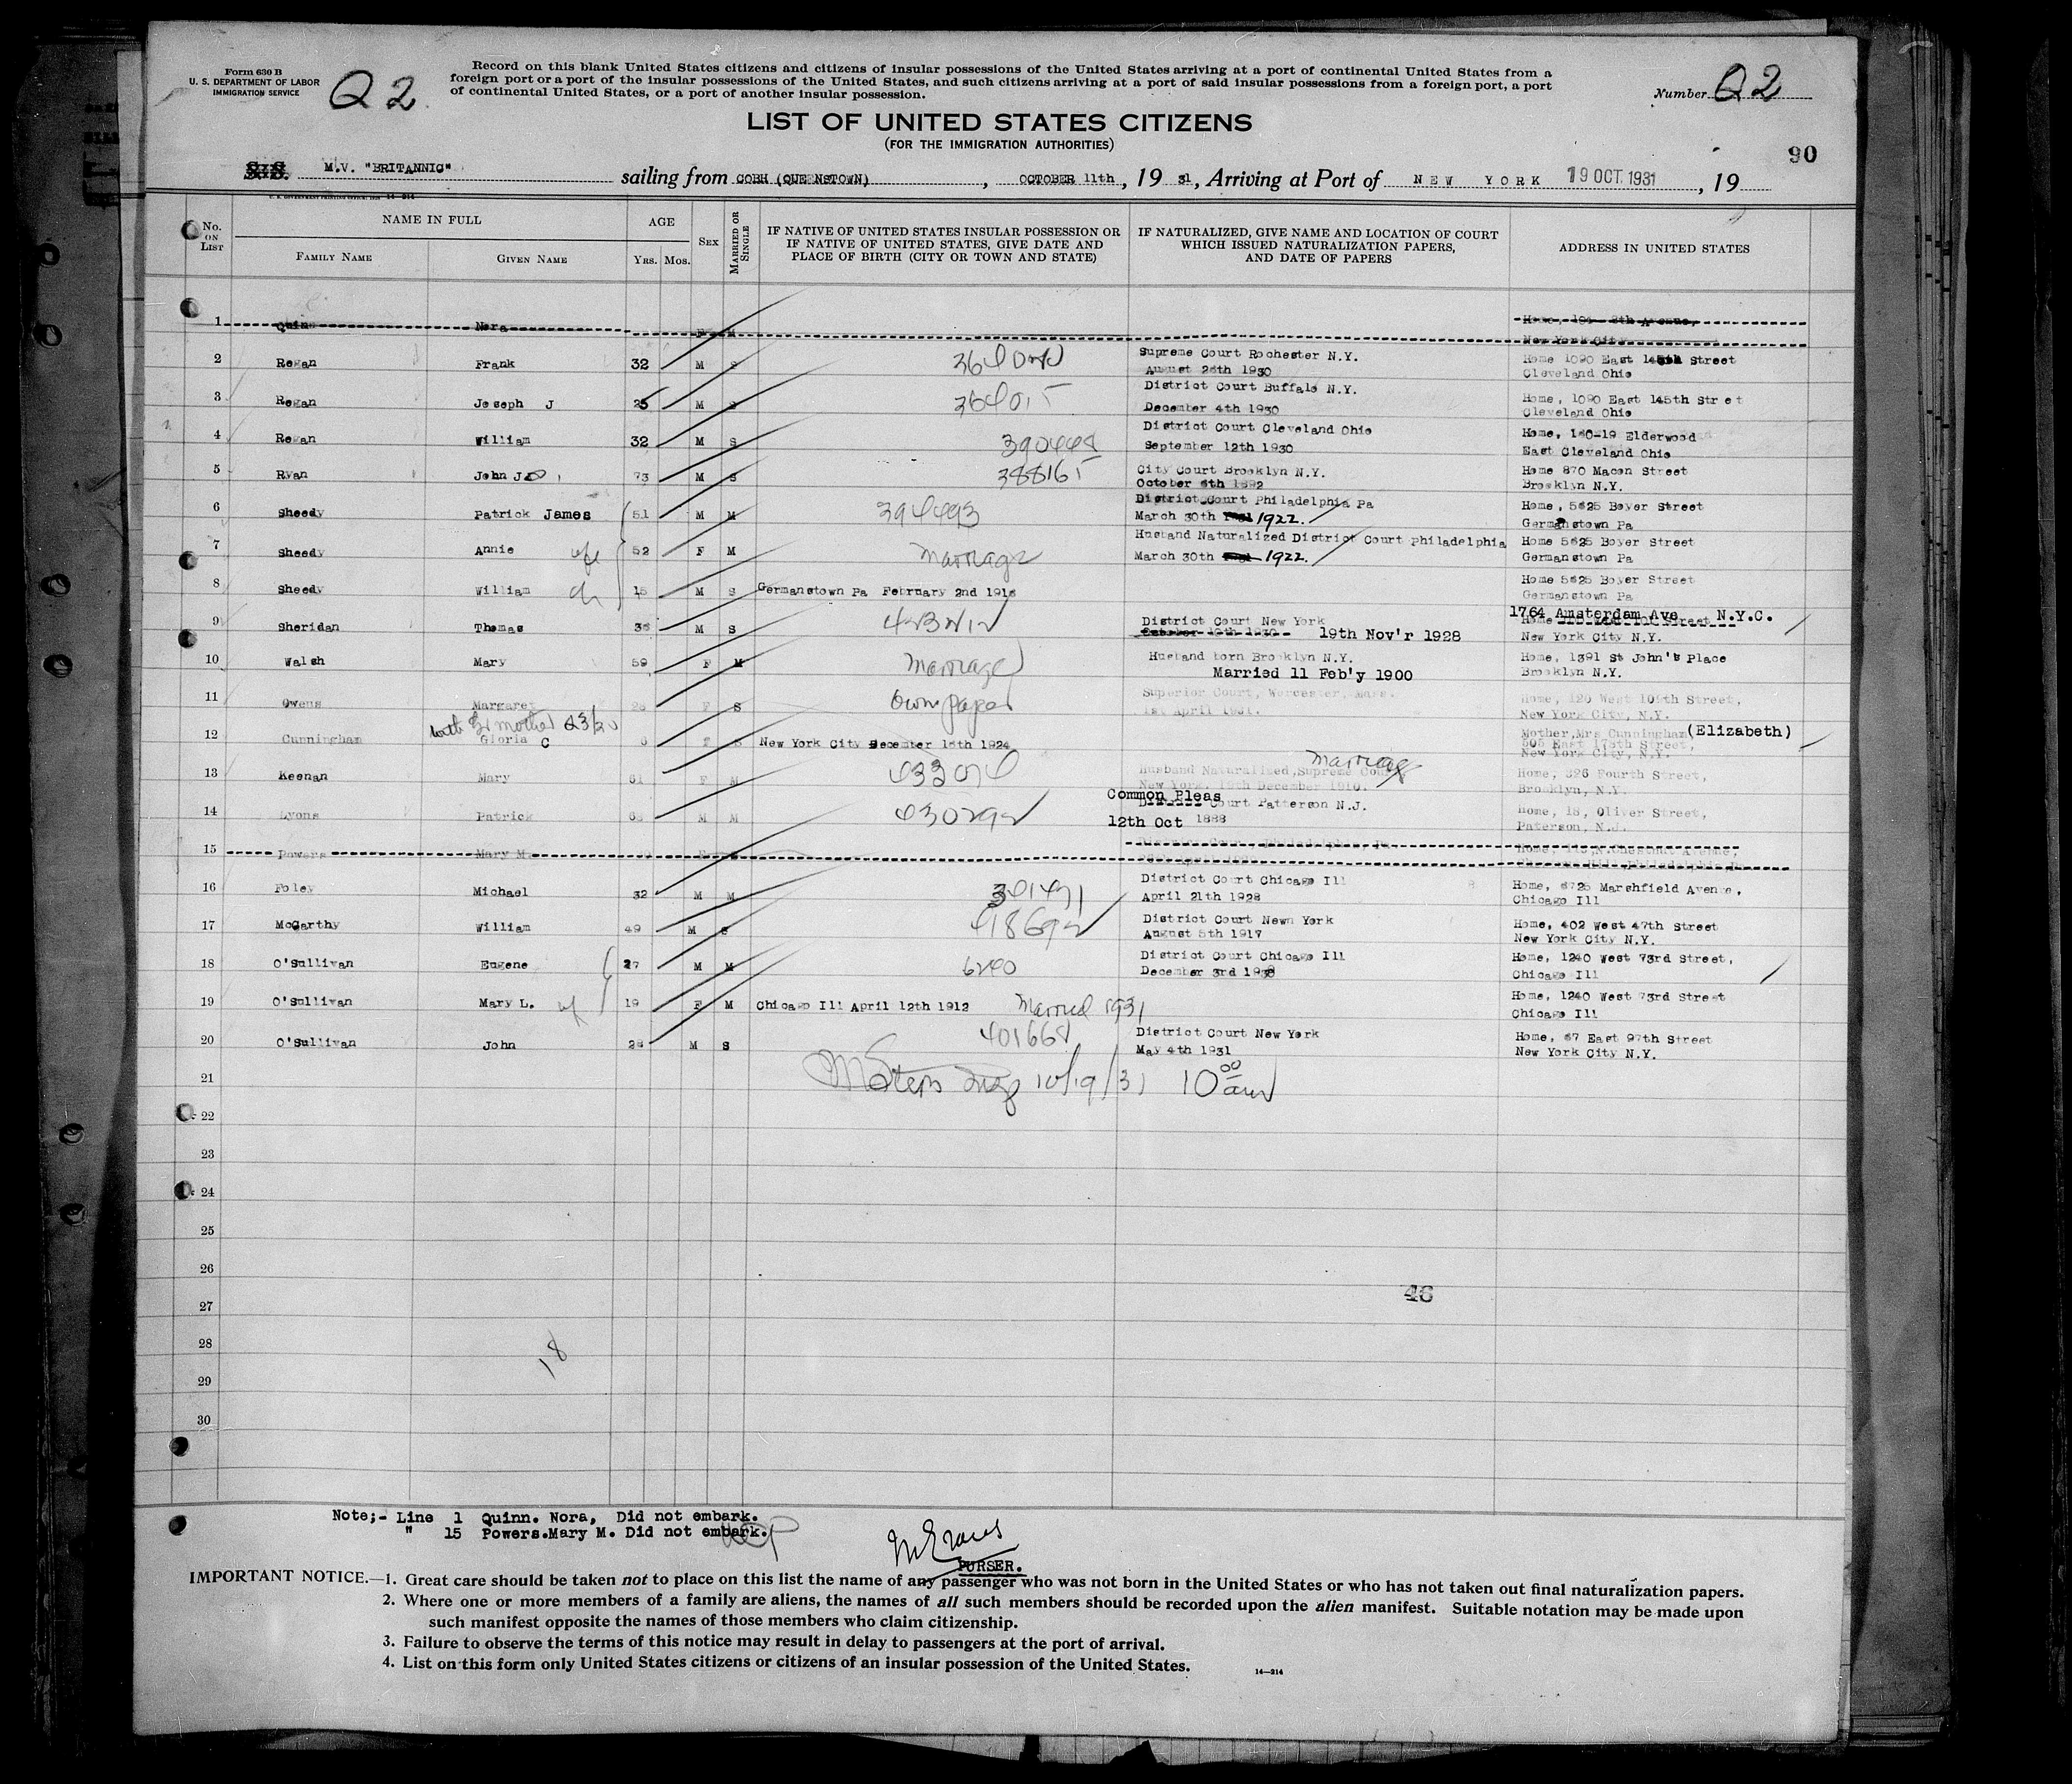 Form 630 B
U. S. DEPARTMENT OF LABOR
IMMIGRATION SERVICE
Q2
Record on this blank United States citizens and citizens of insular possessions of the United States arriving at a port of continental United States from a
foreign port or a port of the insular possessions of the United States, and such citizens arriving at a port of said insular possessions from a foreign port, a port
of continental United States, or a port of another insular possession.
Number Q2
LIST OF UNITED STATES CITIZENS
(FOR THE IMMIGRATION AUTHORITIES)
90
S.S. M.V. "BRITANNIC" sailing from COBH (QUEENSTOWN), OCTOBER 11th, 1931, Arriving at Port of NEW YORK 19 OCT. 1931, 19
No. ON LIST
NAME IN FULL
FAMILY NAME
GIVEN NAME
AGE
YRS. MOS.
SEX
MARRIED OR SINGLE
IF NATIVE OF UNITED STATES INSULAR POSSESSION OR
IF NATIVE OF UNITED STATES, GIVE DATE AND
PLACE OF BIRTH (CITY OR TOWN AND STATE)
IF NATURALIZED, GIVE NAME AND LOCATION OF COURT
WHICH ISSUED NATURALIZATION PAPERS,
AND DATE OF PAPERS
ADDRESS IN UNITED STATES
1 Quinn Nora F Home, Avenue,
New York City
2 Regan Frank 32 M S Supreme Court Rochester N.Y. Home 1090 East 145th Street
August 28th 1930 Cleveland Ohio
3 Regan Joseph J 25 M S District Court Buffalo N.Y. Home, 1090 East 145th Street
December 4th 1930 Cleveland Ohio
4 Regan William 32 M S 390448 District Court Cleveland Ohio Home, 140-19 Elderwood
September 12th 1930 East Cleveland Ohio
5 Ryan John J 73 M S 388165 City Court Brooklyn N.Y. Home 870 Macon Street
October 6th 1892 Brooklyn N.Y.
6 Sheedy Patrick James 51 M M 394493 District Court Philadelphia Pa Home, 5625 Boyer Street
March 30th 1922. Germanstown Pa
7 Sheedy Annie wf 52 F M Marriage Husband Naturalized District Court Philadelphia Home 5625 Boyer Street
March 30th 1922. Germanstown Pa
8 Sheedy William ch 15 M S Germanstown Pa February 2nd 1916 Home 5625 Boyer Street
Germanstown Pa
9 Sheridan Thomas 36 M S District Court New York 1764 Amsterdam Ave N.Y.C.
19th Nov'r 1928 New York City N.Y.
10 Walsh Mary 59 F M Marriage Husband born Brooklyn N.Y. Home, 1391 St John's Place
Married 11 Feb'y 1900 Brooklyn N.Y.
11 Owens Margaret 28 F S Own papers Superior Court, Worcester, Mass. Home, 120 West 106th Street,
1st April 1931. New York City, N.Y.
with mother Q3/30
12 Cunningham Gloria C 6 F S New York City December 16th 1924 Mother, Mrs Cunningham (Elizabeth)
505 East 178th Street,
New York City, N.Y.
13 Keenan Mary 61 F M Husband Naturalized, Supreme Court Marriage Home, 326 Fourth Street,
New York, December 1910. Brooklyn, N.Y.
14 Lyons Patrick 65 M M 430292 Common Pleas Court Patterson N.J. Home, 18, Oliver Street,
12th Oct 1888 Paterson, N.J.
15 Powers Mary M. Philadelphia, Chestnut Avenue,
Hill, Philadelphia, Pa
16 Foley Michael 32 M M District Court Chicago Ill Home, 6725 Marshfield Avenue,
April 21th 1928 Chicago Ill
17 McCarthy William 49 M S 418692 District Court Newn York Home, 402 West 47th Street
August 5th 1917 New York City N.Y.
18 O'Sullivan Eugene 27 M M 6290 District Court Chicago Ill Home, 1240 West 73rd Street,
December 3rd Chicago Ill
19 O'Sullivan Mary L. wf 19 F M Chicago Ill April 12th 1912 Married 1931 Home, 1240 West 73rd Street
Chicago Ill
20 O'Sullivan John 28 M S 401668 District Court New York Home, 67 East 97th Street
May 4th 1931 New York City N.Y.
21 10/19/31 10 00 am
22
23
24
25
26
46
27
28
18
29
30
Note;- Line 1 Quinn. Nora, Did not embark.
" 15 Powers.Mary M. Did not embark.
PURSER.
IMPORTANT NOTICE.—1. Great care should be taken not to place on this list the name of any passenger who was not born in the United States or who has not taken out final naturalization papers.
2. Where one or more members of a family are aliens, the names of all such members should be recorded upon the alien manifest. Suitable notation may be made upon
such manifest opposite the names of those members who claim citizenship.
3. Failure to observe the terms of this notice may result in delay to passengers at the port of arrival.
4. List on this form only United States citizens or citizens of an insular possession of the United States.
14—214